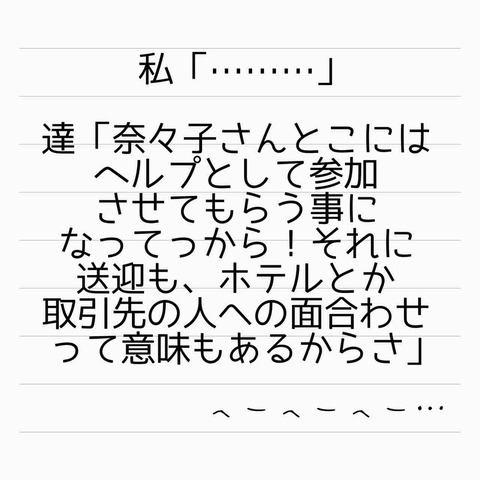 私「………」
達「奈々子さんとこには
ヘルプとして参加
させてもらう事に
なってっから！それに
送迎も、ホテルとか
取引先の人への面合わせ
って意味もあるからさ」
へーへーへー…